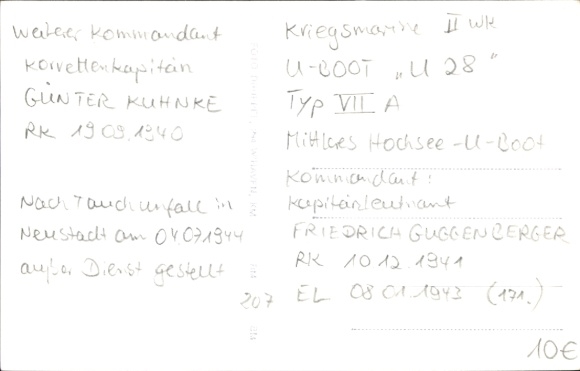 Weiterer Kommandant
Korvettenkapitän
GÜNTER KUHNKE
RK 19 09.1940
Nach Tauchunfall in
Neustadt am 04 07 1944
außer Dienst gestellt
207
Kriegsmarine II WK
U-BOOT „U 28"
Typ VII A
Mittleres Hochsee-U-Boot
Kommandant:
Kapitänleutnant
FRIEDRICH GUGGENBERGER
RK 10 12.1941
EL 08 01.1943 (171.)
10€